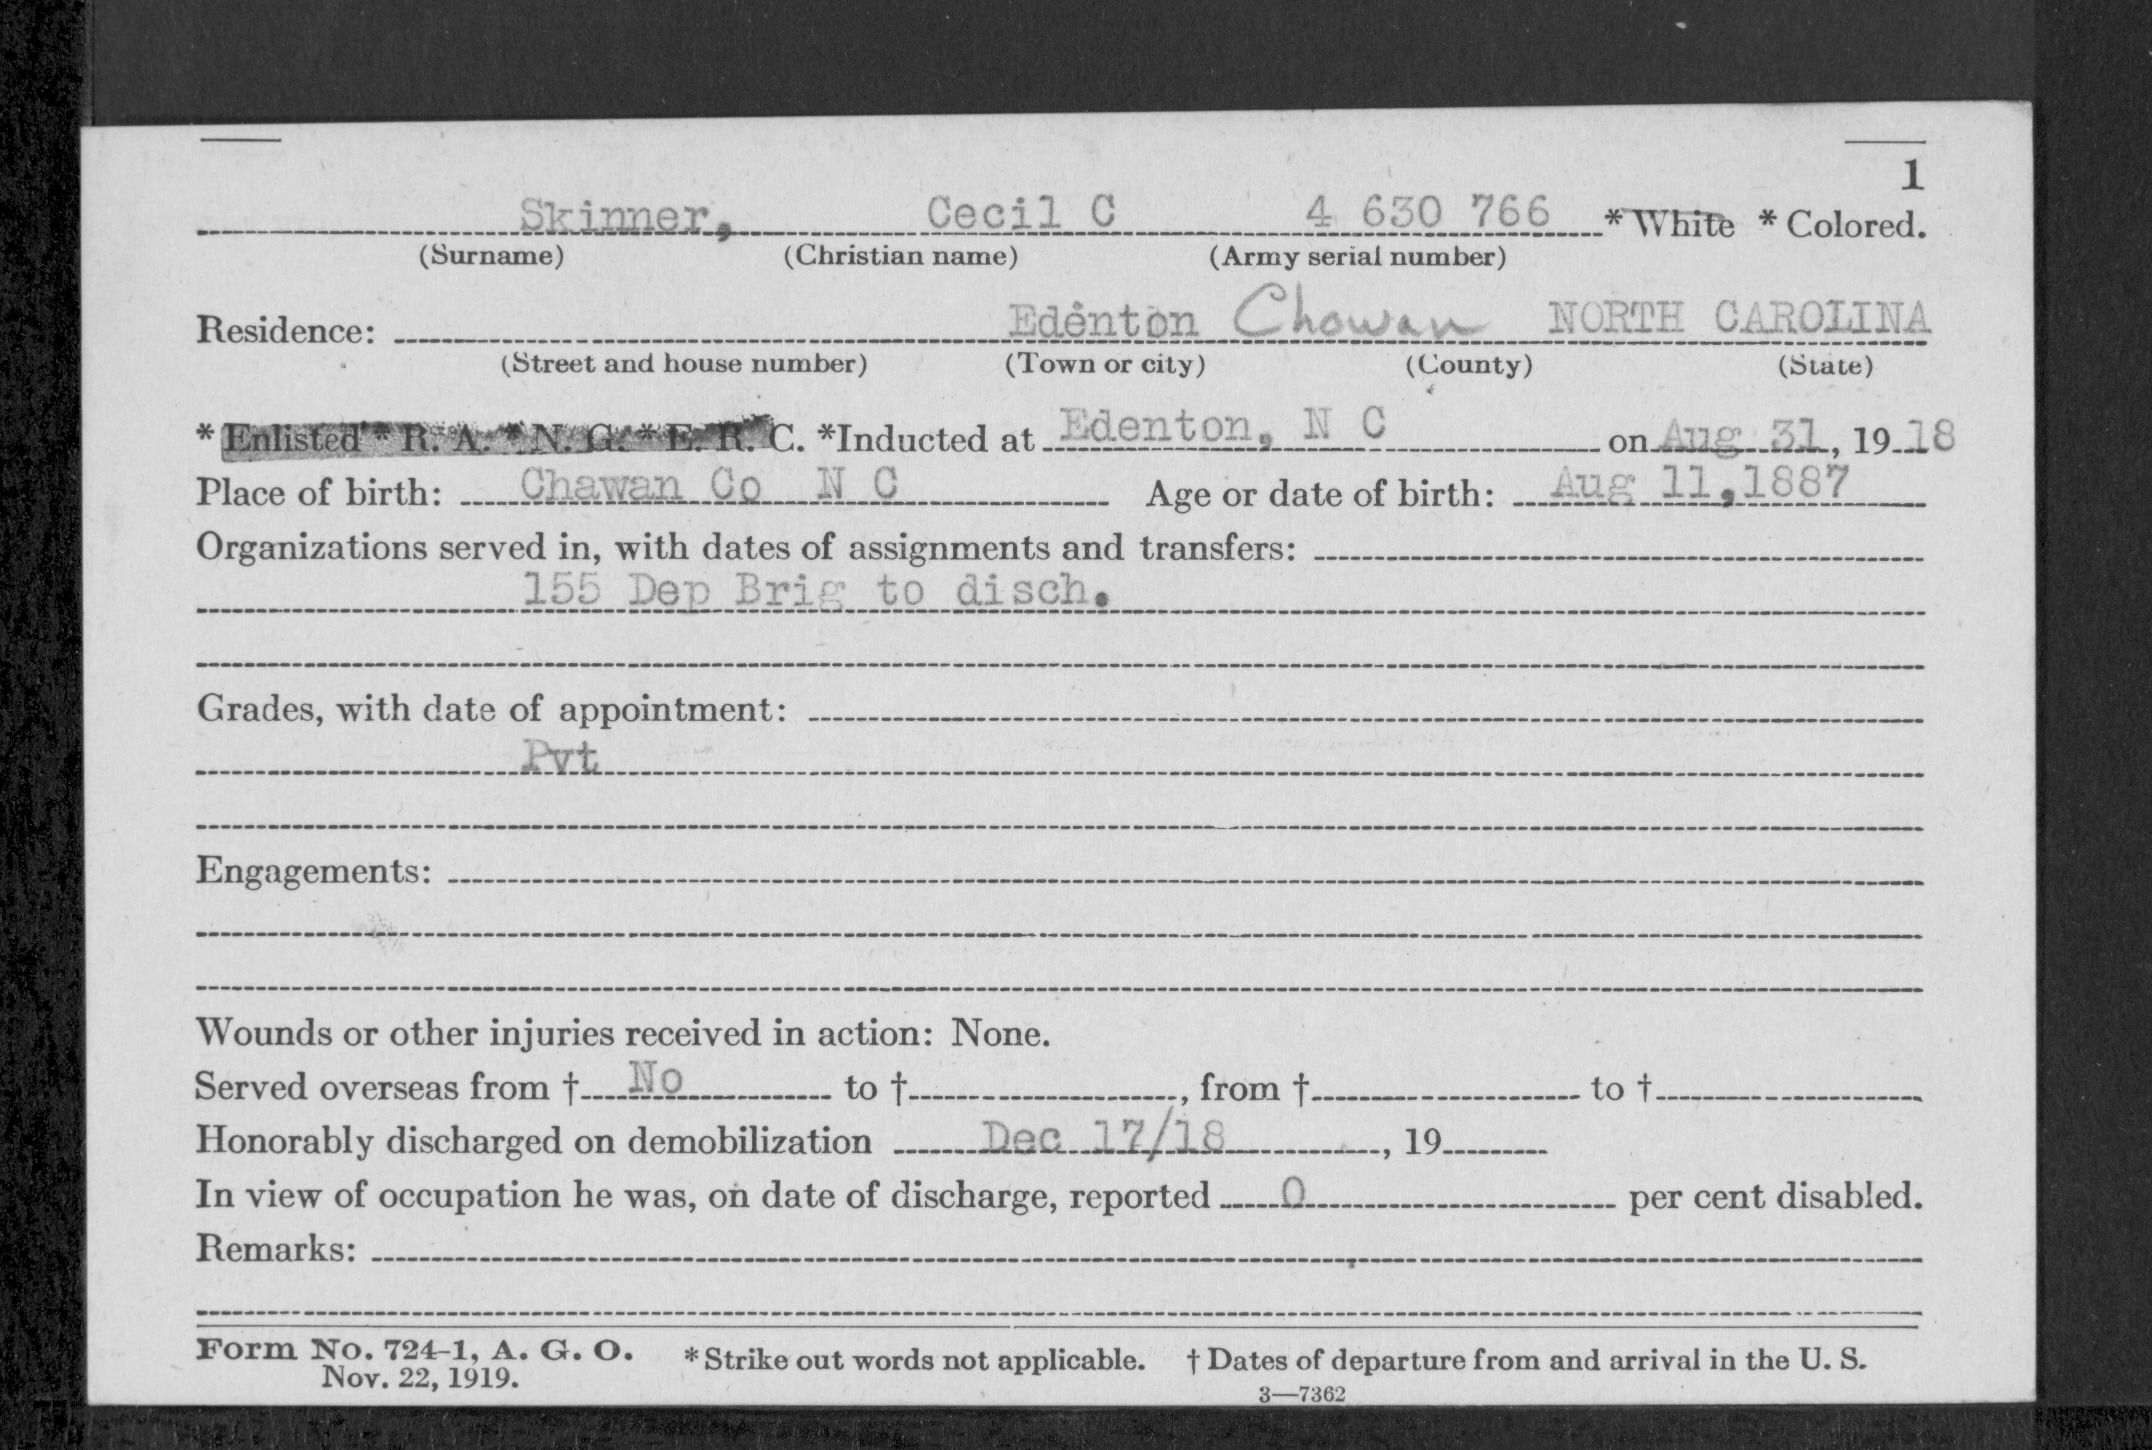 1
Skinner, Cecil C 4 630 766 * White * Colored.
(Surname) (Christian name) (Army serial number)
Residence: Edenton Chowan NORTH CAROLINA
(Street and house number) (Town or city) (County) (State)
* Enlisted * R. A. * N. G. * E. R. C. *Inducted at Edenton, N C on Aug 31, 19 18
Place of birth: Chawan Co N C Age or date of birth: Aug 11, 1887
Organizations served in, with dates of assignments and transfers:
155 Dep Brig to disch.
Grades, with date of appointment:
Pvt
Engagements:
Wounds or other injuries received in action: None.
Served overseas from † No to †, from † to †
Honorably discharged on demobilization Dec 17/18, 19
In view of occupation he was, on date of discharge, reported 0 per cent disabled.
Remarks:
Form No. 724-1, A. G. O. * Strike out words not applicable. † Dates of departure from and arrival in the U. S.
Nov. 22, 1919.
3—7362